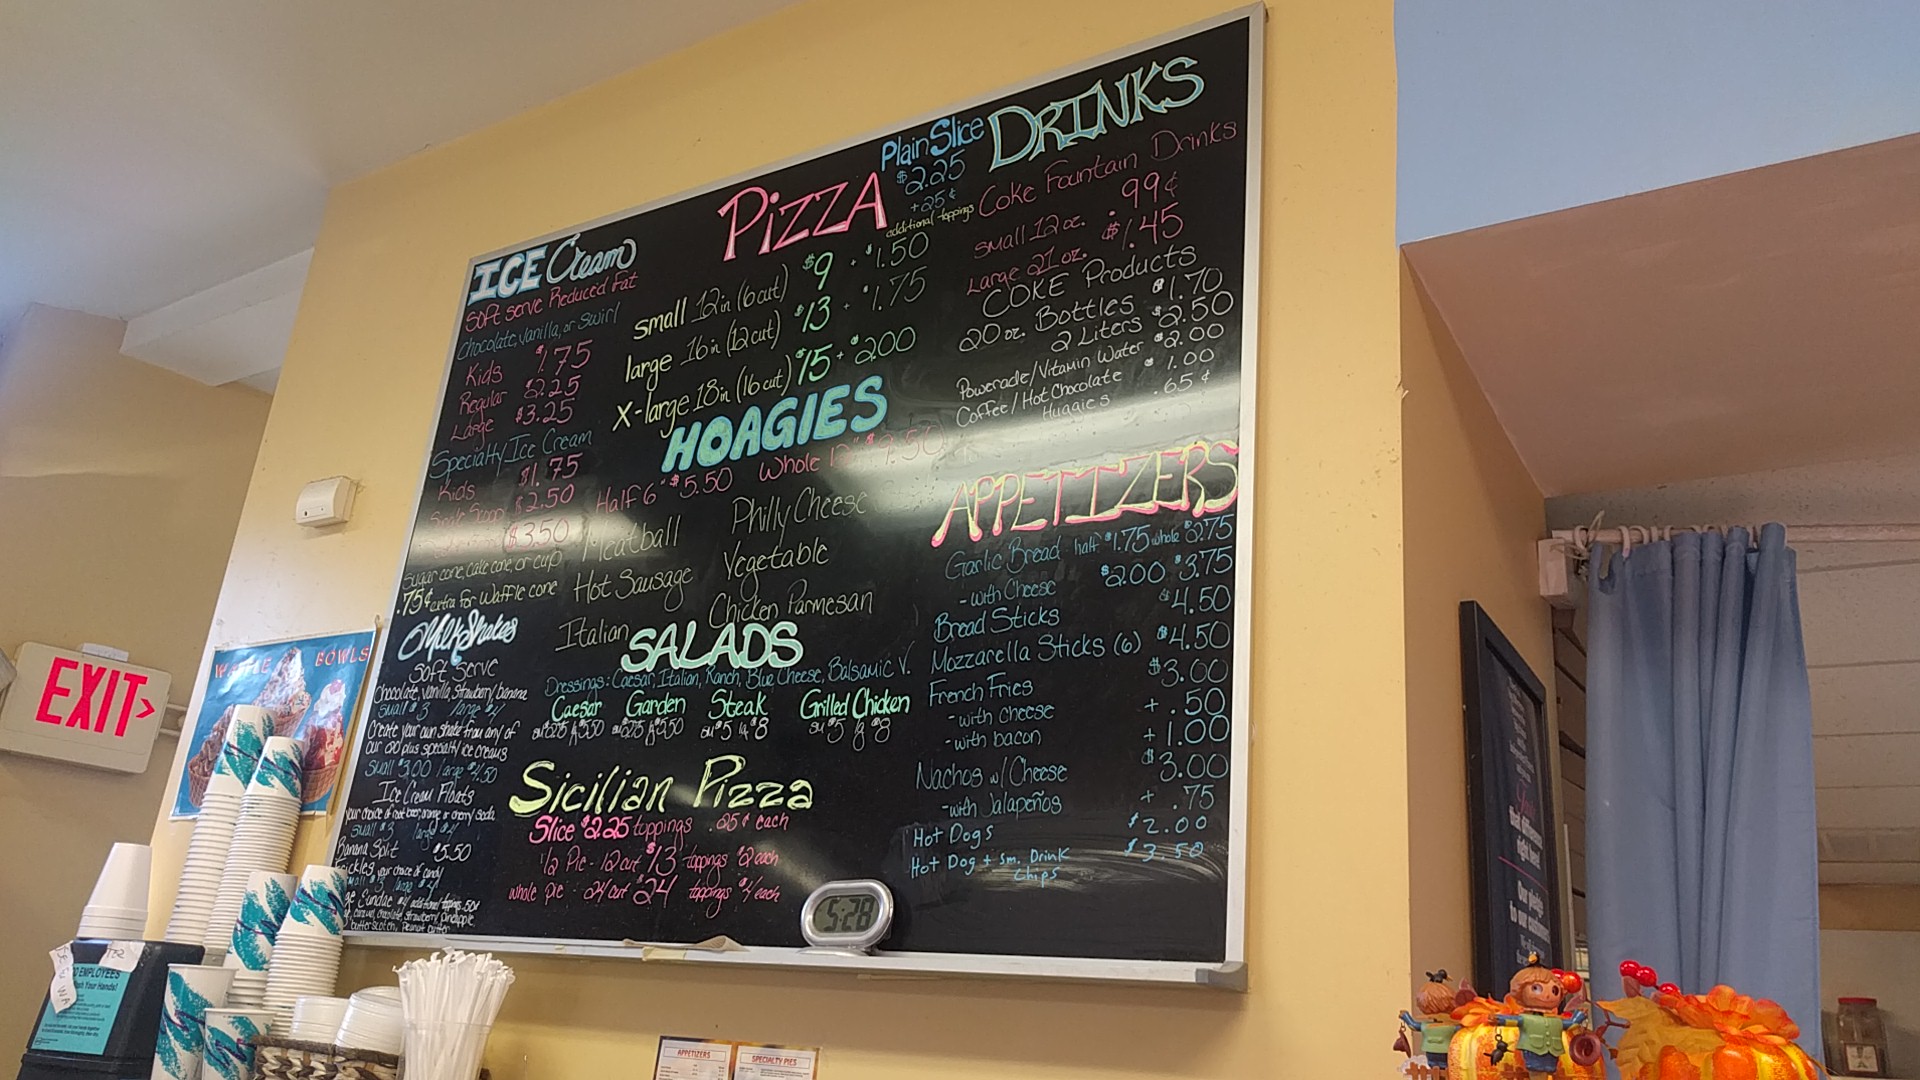 ICE Cream
Soft serve Reduced Fat
Chocolate, vanilla, or swirl
Kids $1.75
Regular $2.25
Large $3.25
Specialty Ice Cream
Kids $1.75
Single Scoop $2.50
$3.50
Sugar cone, cake cone, or cup
.75¢ extra for waffle cone
MilkShakes
Soft Serve
Chocolate, vanilla, strawberry, banana
small $3 large $4
Create your own shake from any of
our plus specialty ice creams
Small $3.00 / large $4.50
Ice Cream Floats
your choice of root beer, orange or cherry soda
small $3 large $4
Banana Split $5.50
your choice of candy
additional toppings .50¢
caramel, chocolate, strawberry, pineapple,
butterscotch, peanut butter
PIZZA
Plain Slice
$2.25
+ 25¢
additional toppings
small 12in (6cut) $9 + $1.50
large 16in (12cut) $13 + $1.75
X-large 18in (16cut) $15 + $2.00
HOAGIES
Half 6" $5.50 Whole 12" $9.50
Meatball Philly Cheese
Hot Sausage Vegetable
Italian Chicken Parmesan
SALADS
Dressings: Caesar, Italian, Ranch, Blue Cheese, Balsamic V.
Caesar Garden Steak Grilled Chicken
sm $5 lg $8 sm $5 lg $8
Sicilian Pizza
Slice $2.25 toppings .25¢ each
1/2 Pie - 12cut $13 toppings $2 each
whole Pie - 24 cut $24 toppings $4 each
DRINKS
Coke Fountain Drinks
small 12 oz. .99¢
Large 21 oz. $1.45
COKE Products
20 oz. Bottles $1.70
2 Liters $2.50
Powerade/Vitamin Water $2.00
Coffee/Hot Chocolate $1.00
Huggies .65¢
APPETIZERS
Garlic Bread half $1.75 whole $2.75
-with Cheese $2.00 $3.75
Bread Sticks $4.50
Mozzarella Sticks (6) $4.50
French Fries $3.00
-with cheese + .50
-with bacon +1.00
Nachos w/Cheese $3.00
-with Jalapeños + .75
Hot Dogs $2.00
Hot Dog + sm. Drink $3.50
Chips
5:28
EXIT
WAFFLE BOWLS
EMPLOYEES
Wash Your Hands!
APPETIZERS
SPECIALTY PIES
that difference
right here!
Our pledge
to our customers